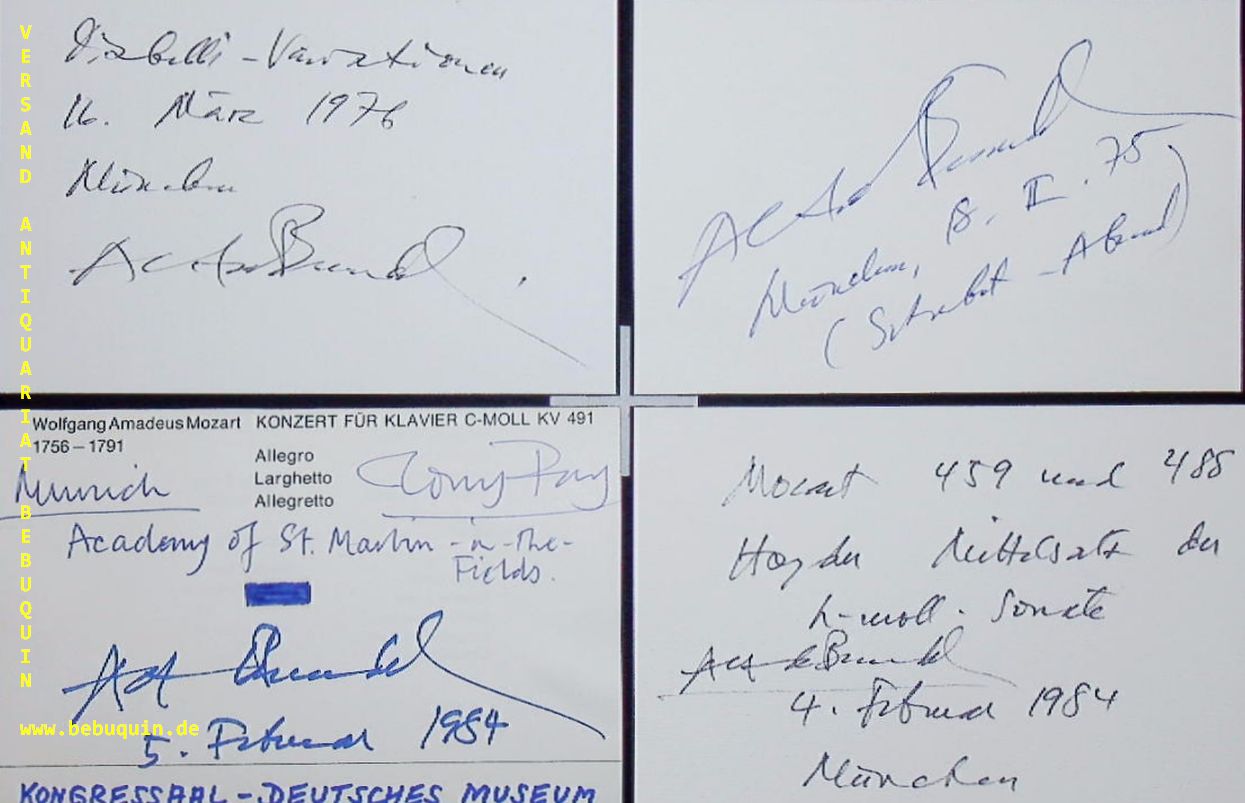 VERSAND ANTIQUARIAT BEBUQUIN
www.bebuquin.de
Diabelli-Variationen
16. März 1976
München
Alfred Brendel
Alfred Brendel
München, 18. II. 75
(Schubert-Abend)
Wolfgang Amadeus Mozart KONZERT FÜR KLAVIER C-MOLL KV 491
1756 – 1791
Allegro
Larghetto
Allegretto
Munich
Tony Pay
Academy of St. Martin-in-the-
Fields.
Alfred Brendel
5. Februar 1984
KONGRESSAAL - DEUTSCHES MUSEUM
Mozart 459 und 488
Haydn Mittelsatz der
h-moll-Sonate
Alfred Brendel
4. Februar 1984
München